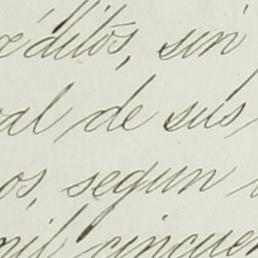 réditos, sin
al de sus
os, segun
mil cincuen